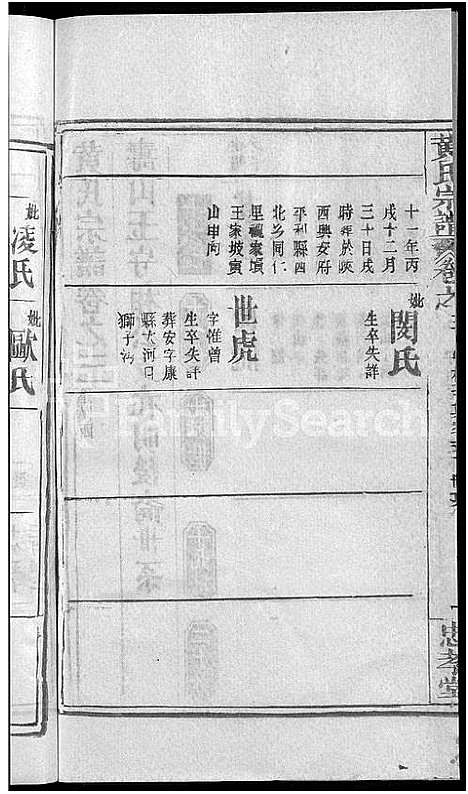 黃氏宗譜
卷之
忠孝堂
十一年丙
戌十二月
三十日戌
時葬於陝
西興安府
平利縣四
北乡同仁
里龍家填
王家坡寅
山申向
妣閔氏
生卒失詳
世虎
字惟曾
生卒失詳
葬安字康
縣大河日
獅子沟
妣凌氏
妣歐氏
FamilySearch